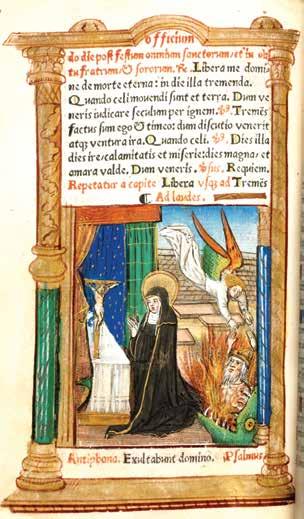 officium
do die post festum omnium sanctorum/et in ob
itu fratrum/& sororum. Re. Libera me domi
ne de morte eterna: in die illa tremenda.
Quando celi movendi sunt et terra. Dum ve
neris iudicare seculum per ignem. Tremēs
factus sum ego & timeo: dum discutio venerit
atqȝ ventura ira. Quando celi. Dies illa
dies ire/calamitatis et miserie: dies magna/et
amara valde. Dum veneris. Requiem.
Repetatur a capite Libera usqȝ ad Tremēs
¶ Ad laudes.
Antiphona. Exultabunt domino. Psalmus